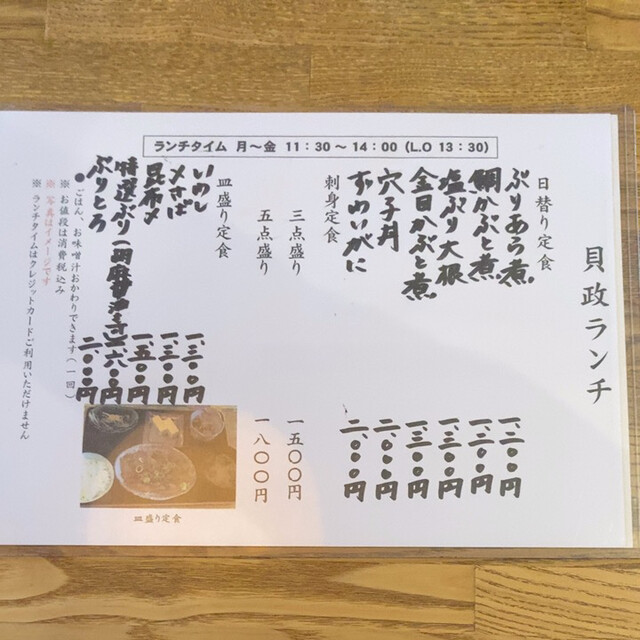 ランチタイム 月～金 11：30～14：00（L.O 13：30）
貝政ランチ
日替り定食
ぶりあら煮 一、二〇〇円
鯛かぶと煮 一、二〇〇円
塩ぶり大根 一、三〇〇円
金目かぶと煮 一、三〇〇円
穴子丼 二、〇〇〇円
ずわいがに 二、〇〇〇円
刺身定食
三点盛り 一五〇〇円
五点盛り 一八〇〇円
皿盛り定食
いわし 一、三〇〇円
〆さば 一、三〇〇円
昆布〆 一、五〇〇円
特選ぶり 一、六〇〇円
ぶりとろ 二、〇〇〇円
●ごはん、お味噌汁おかわりできます（一回）
※ お値段は消費税込み
※ 写真はイメージです
※ ランチタイムはクレジットカードご利用いただけません
皿盛り定食